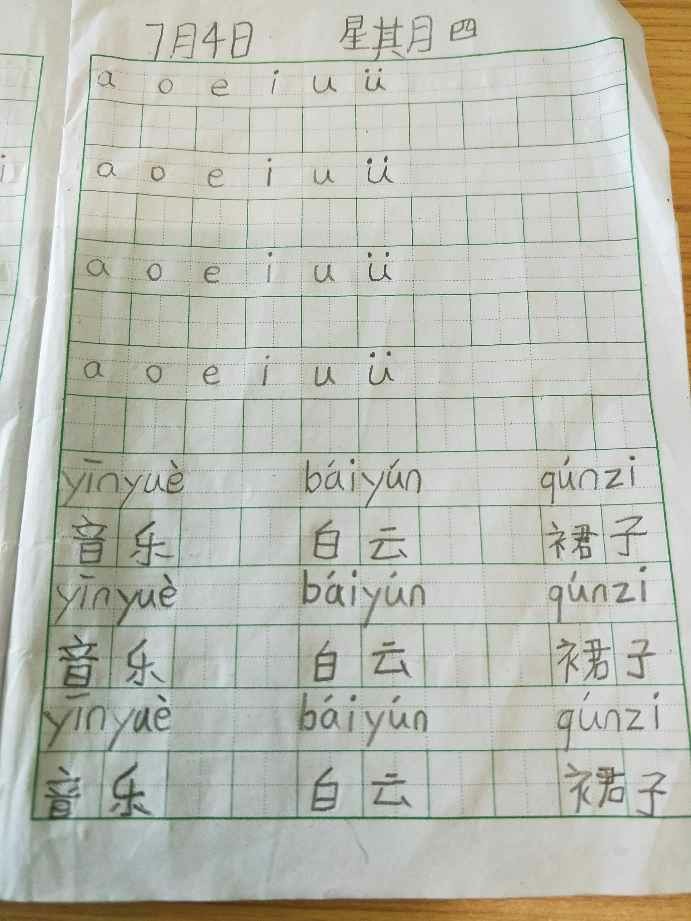 7月4日 星期四
a o e i u ü
a o e i u ü
a o e i u ü
a o e i u ü
yīnyuè báiyún qúnzi
音乐 白云 裙子
yīnyuè báiyún qúnzi
音乐 白云 裙子
yīnyuè báiyún qúnzi
音乐 白云 裙子